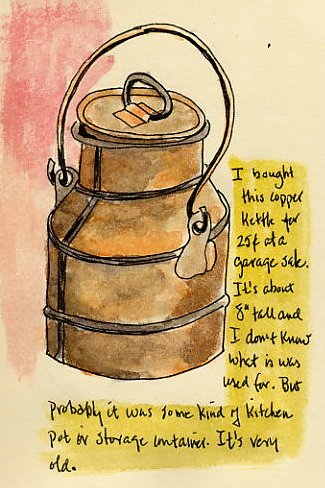 I bought
this copper
kettle for
25¢ at a
garage sale.
It's about
8" tall and
I don't know
what is was
used for. But
probably it was some kind of kitchen
pot or storage container. It's very
old.